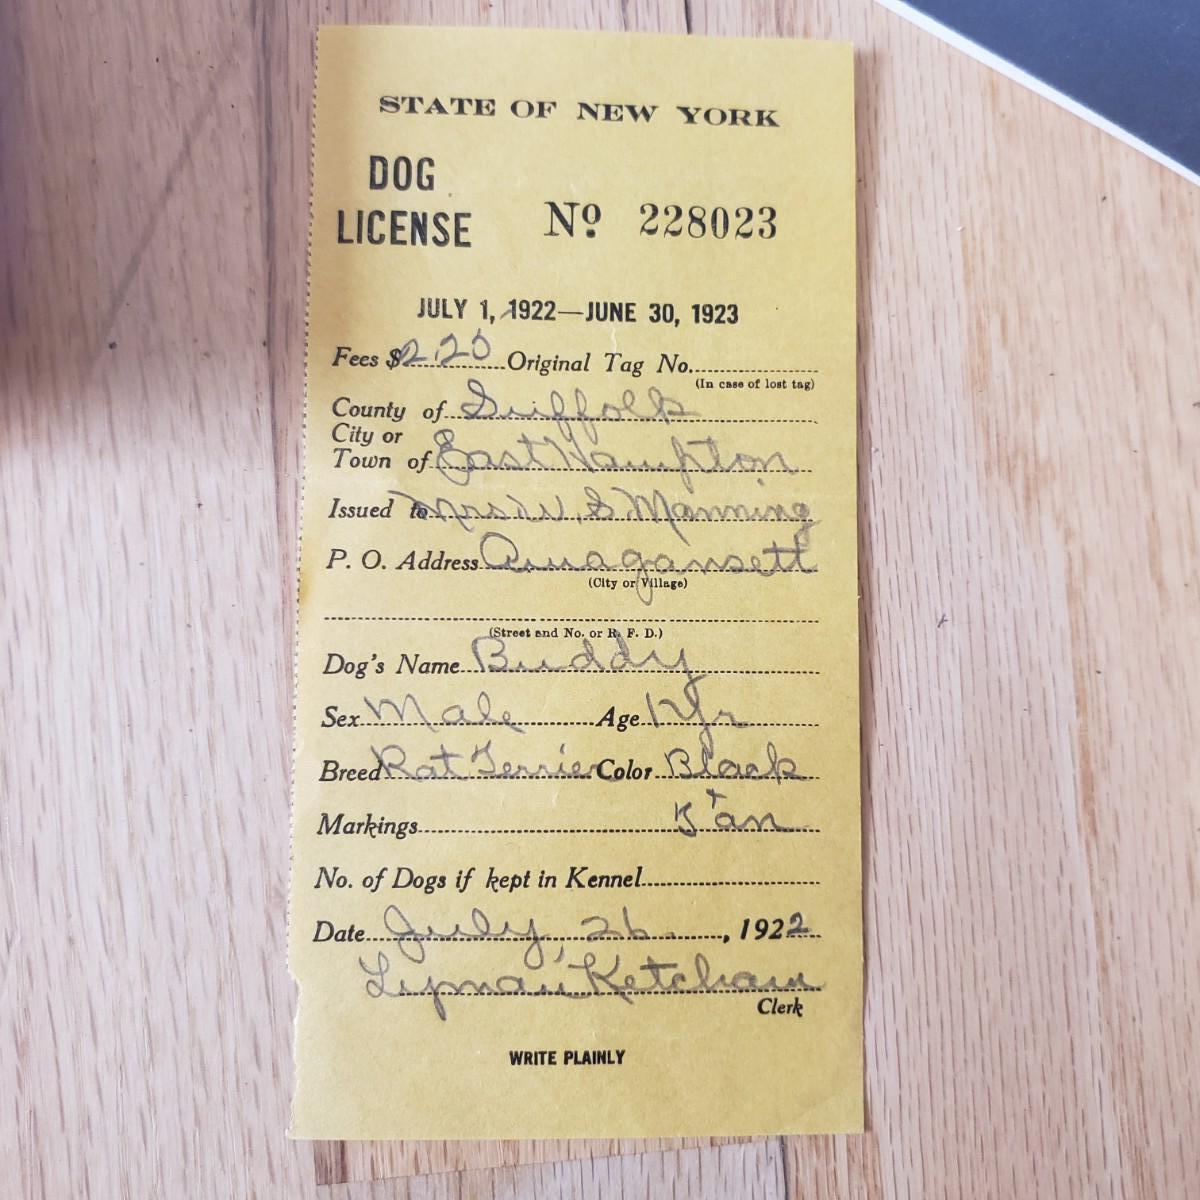 STATE OF NEW YORK
DOG
LICENSE
No 228023
JULY 1, 1922—JUNE 30, 1923
Fees $ 2.20 Original Tag No.
(In case of lost tag)
County of Suffolk
City or
Town of East Hampton
Issued to Mrs W. S Manning
P. O. Address Amagansett
(City or Village)
(Street and No. or R. F. D.)
Dog's Name Buddy
Sex Male Age 1 Yr
Breed Rat Terrier Color Black
Markings + Tan
No. of Dogs if kept in Kennel
Date July, 26 , 1922
Lyman Ketcham
Clerk
WRITE PLAINLY